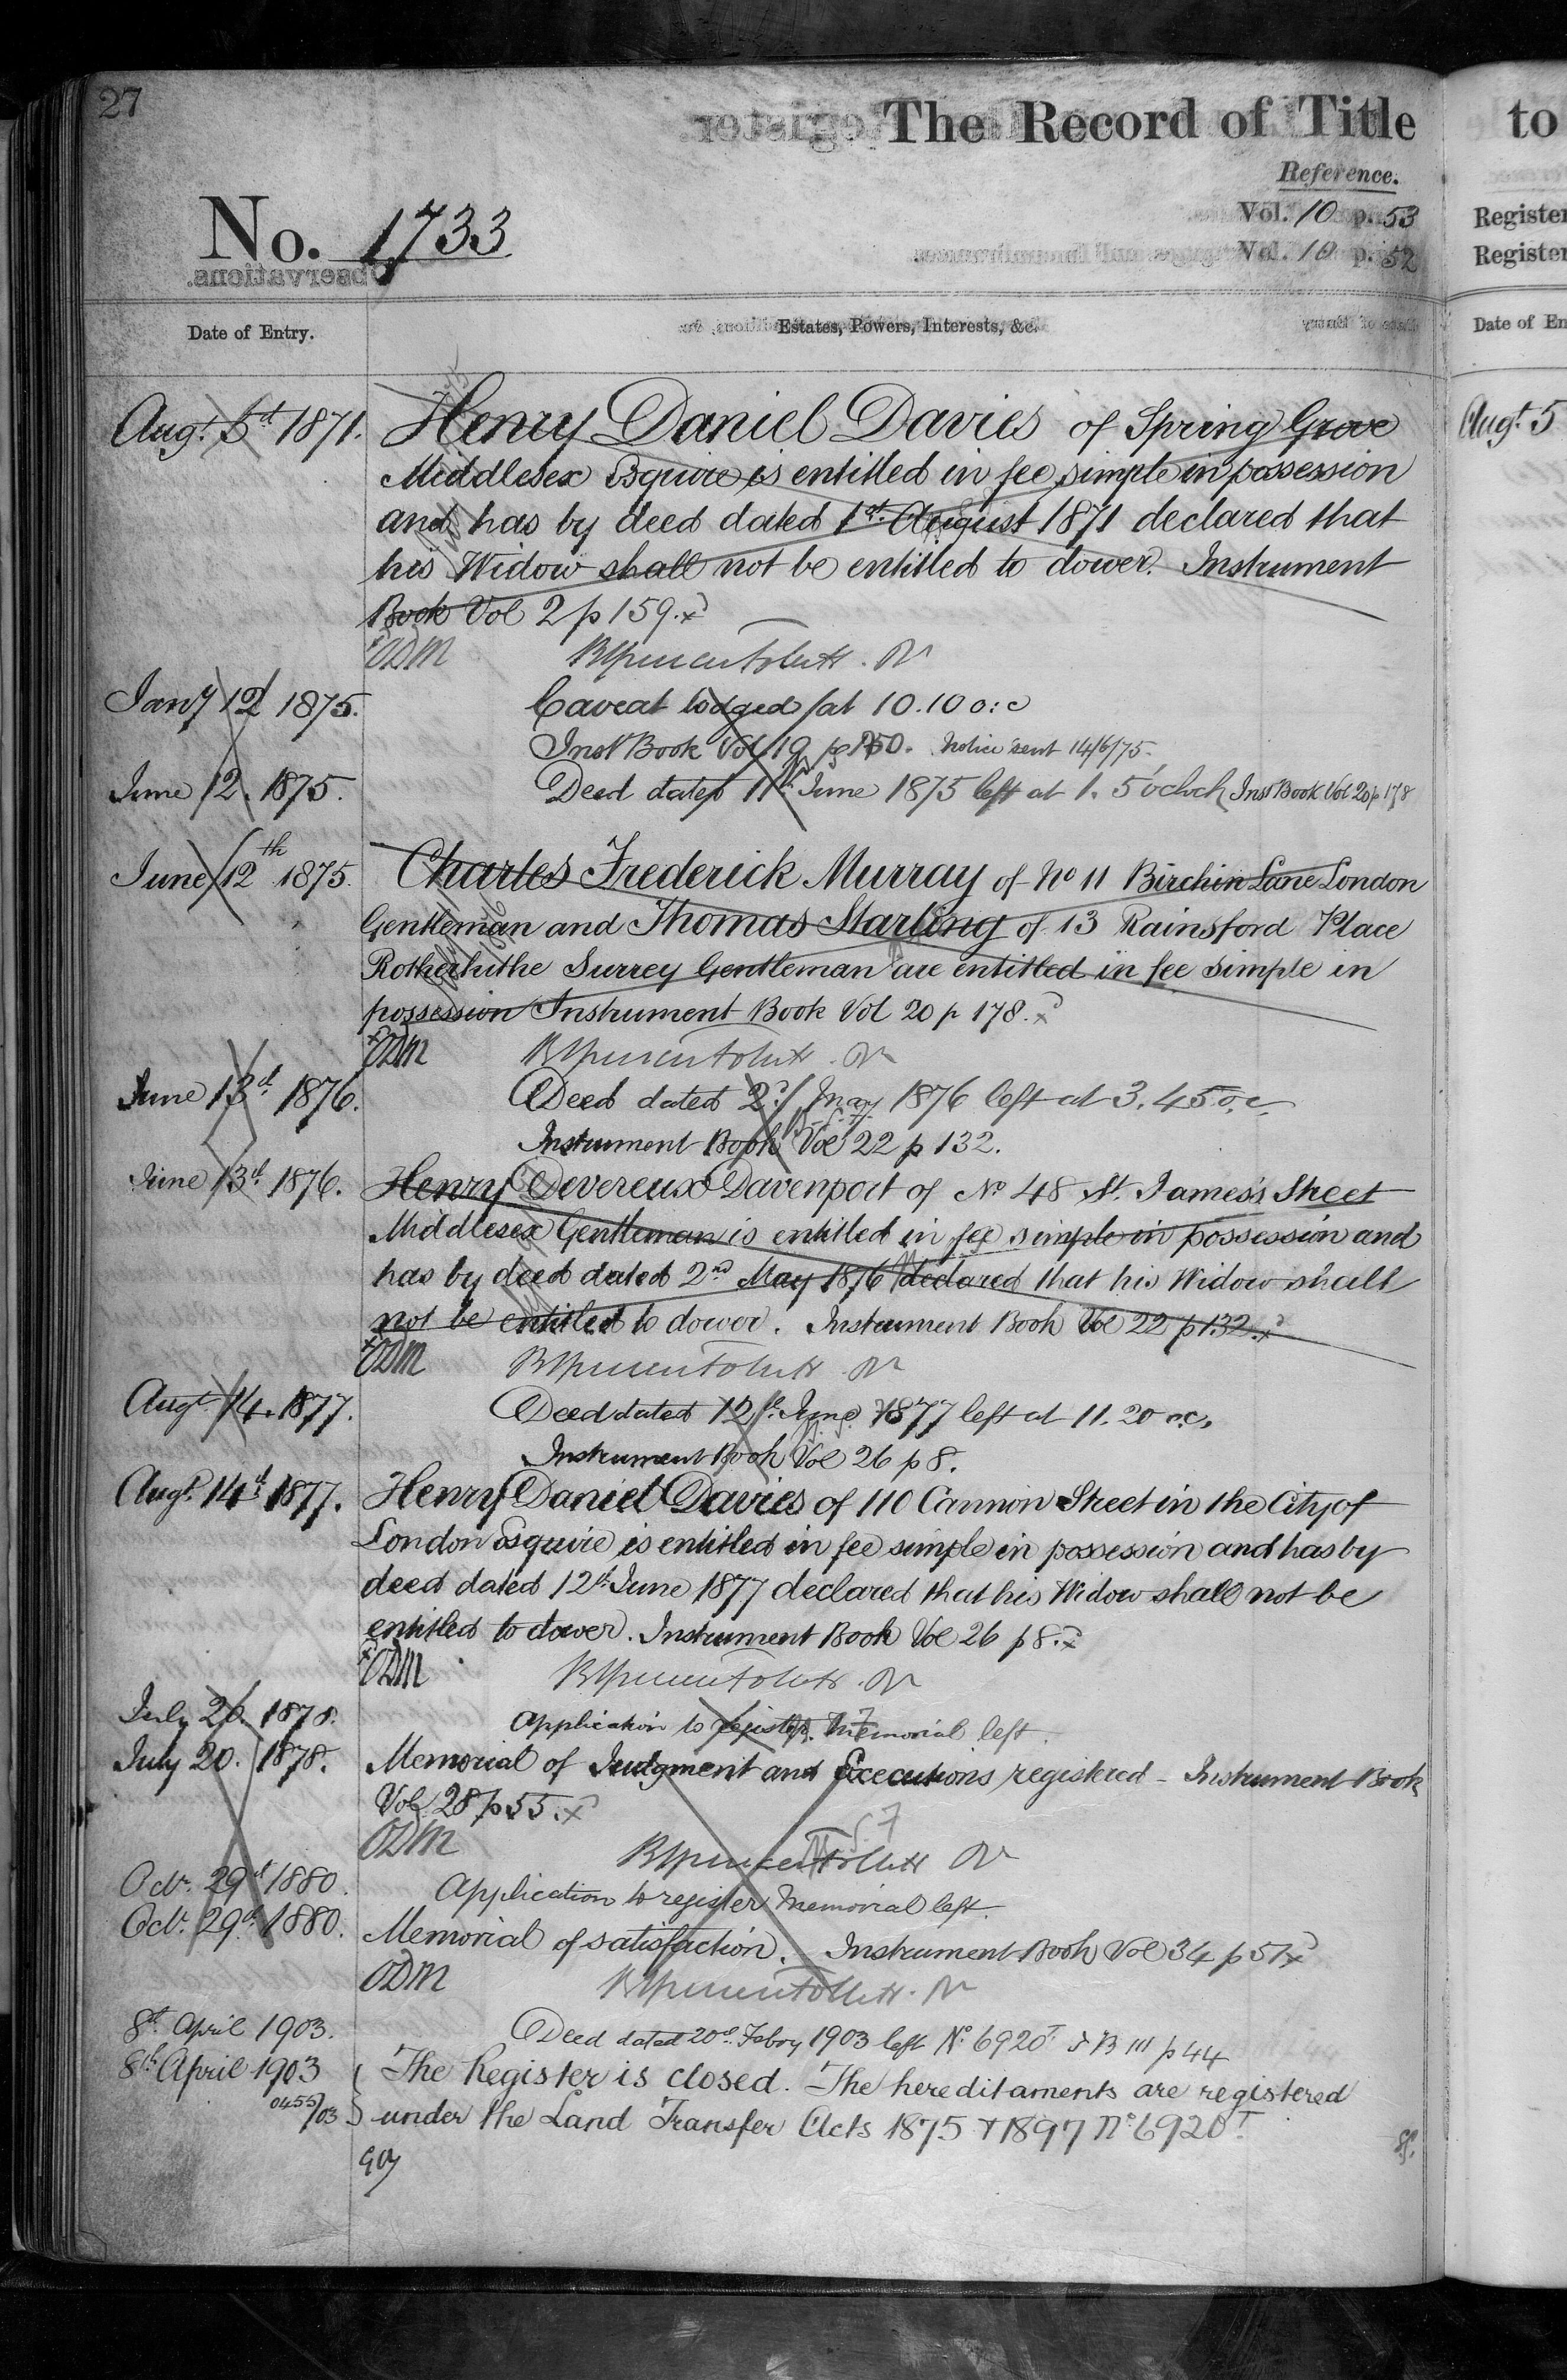 27
The Record of Title
to
Reference.
No. 1733
Vol. 10 p. 53
Vol. 10 p. 52
Register
Register
Date of Entry.
Estates, Powers, Interests, &c.
Date of En
Augt. 5th 1871. Henry Daniel Davies of Spring Grove
Augt. 5
Middlesex Esquire is entitled in fee simple in possession
and has by deed dated 1st. August 1871 declared that
his Widow shall not be entitled to dower. Instrument
Book Vol 2 p 159.
ODM
Jany 12 1875. Caveat lodged at 10.10 o:c
Inst Book Vol 19 p 150. Notice sent 14/6/75.
June 12. 1875. Deed dated 11th June 1875 left at 1. 5 o'clock Inst Book Vol 20 p 178
June 12th 1875. Charles Frederick Murray of No 11 Birchin Lane London
Gentleman and Thomas Starling of 13 Rainsford Place
Rotherhithe Surrey Gentleman are entitled in fee simple in
possession Instrument Book Vol 20 p 178.
ODM
June 13th 1876. Deed dated 2d May 1876 left at 3.45 o.c.
Instrument Book Vol 22 p 132.
June 13th 1876. Henry Devereux Davenport of No 48 St. James's Street
Middlesex Gentleman is entitled in fee simple in possession and
has by deed dated 2nd May 1876 declared that his Widow shall
not be entitled to dower. Instrument Book Vol 22 p 132.
ODM
Augt 14. 1877. Deed dated 12th June 1877 left at 11.20 o.c.
Instrument Book Vol 26 p 8.
Augt. 14th 1877. Henry Daniel Davies of 110 Cannon Street in the City of
London Esquire is entitled in fee simple in possession and has by
deed dated 12th June 1877 declared that his Widow shall not be
entitled to dower. Instrument Book Vol 26 p 8.
ODM
July 20. 1878. Application to register Memorial left.
July 20. 1878. Memorial of Judgment and Executions registered - Instrument Book
Vol 28 p 55.
ODM
Octr. 29th 1880. Application to register Memorial left.
Octr. 29th 1880. Memorial of satisfaction. Instrument Book Vol 34 p 51
ODM
8th April 1903. Deed dated 20th Febry 1903 left No. 6920T I B 111 p 44
8th April 1903 The Register is closed. The hereditaments are registered
0455/03 under the Land Transfer Acts 1875 & 1897 No 6920T.